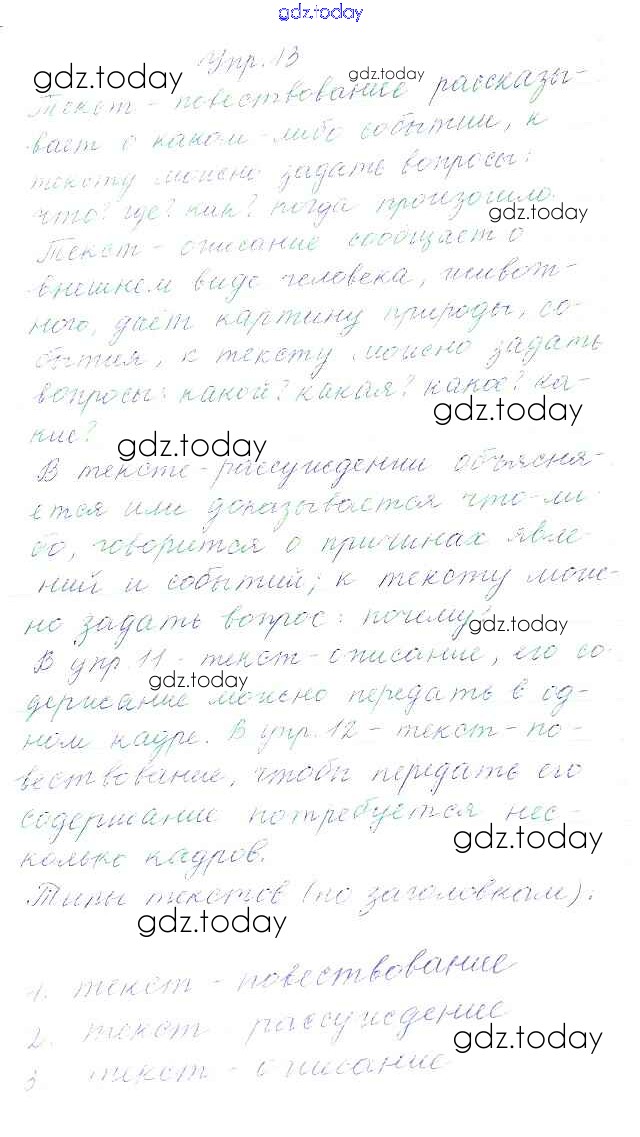 gdz.today
Упр. 13
gdz.today gdz.today
Текст - повествование рассказы-
вает о каком-либо событии, к
тексту можно задать вопросы:
что? где? как? когда произошло.
gdz.today
Текст - описание сообщает о
внешнем виде человека, живот-
ного, даёт картину природы, со-
бытия, к тексту можно задать
вопросы: какой? какая? какое? ка-
кие?
gdz.today
gdz.today
В тексте - рассуждении объясня-
ется или доказывается что-ли-
бо, говорится о причинах явле-
ний и событий; к тексту мож-
но задать вопрос: почему?
gdz.today
В упр. 11 - текст - описание, его со-
держание можно передать в од-
gdz.today
ном кадре. В упр. 12 - текст - по-
вествование, чтобы передать его
содержание потребуется нес-
колько кадров.
gdz.today
Типы текстов (по заголовкам):
gdz.today
1. текст - повествование
2. текст - рассуждение
gdz.today
3 текст - описание